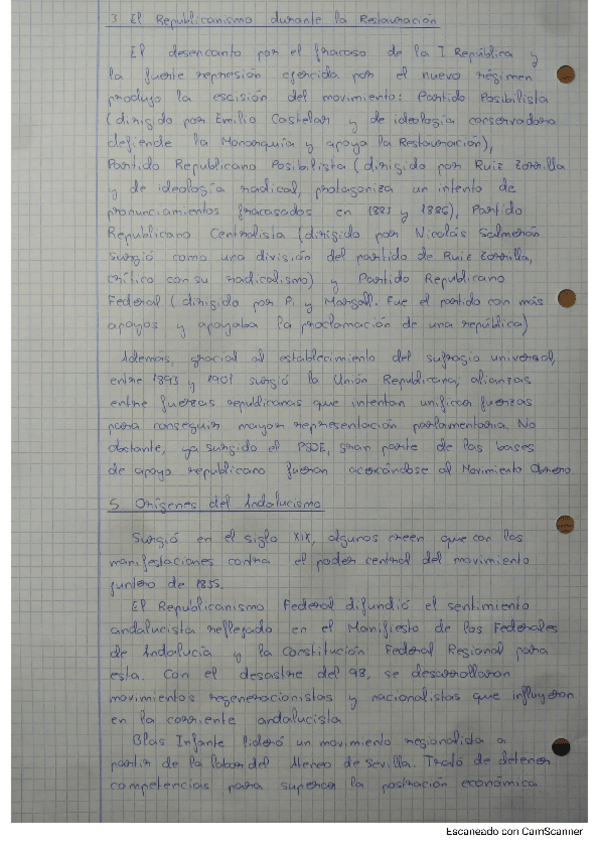 3 El Republicanismo durante la Restauración
El desencanto por el fracaso de la I República y
la fuerte represión ejercida por el nuevo régimen
produjo la escisión del movimiento: Partido Posibilista
(dirigido por Emilio Castelar y de ideología conservadora
defiende la Monarquía y apoya la Restauración),
Partido Republicano Posibilista (dirigido por Ruiz Zorrilla
y de ideología radical, protagoniza un intento de
pronunciamientos fracasados en 1883 y 1886), Partido
Republicano Centralista (dirigido por Nicolás Salmerón
surgió como una división del partido de Ruiz Zorrilla,
crítico con su radicalismo) y Partido Republicano
Federal (dirigido por Pi y Margall. Fue el partido con más
apoyos y apoyaba la proclamación de una república)
Además, gracias al establecimiento del sufragio universal,
entre 1893 y 1901 surgió la Unión Republicana, alianzas
entre fuerzas republicanas que intentan unificar fuerzas
para conseguir mayor representación parlamentaria. No
obstante, ya surgido el PSOE, gran parte de las bases
de apoyo republicano fueron acercándose al Movimiento Obrero.
5 Orígenes del Andalucismo
Surgió en el siglo XIX, algunos creen que con las
manifestaciones contra el poder central del movimiento
juntero de 1835.
El Republicanismo Federal difundió el sentimiento
andalucista reflejado en el Manifiesto de los Federales
de Andalucía y la Constitución Federal Regional para
esta. Con el desastre del 98, se desarrollaron
movimientos regeneracionistas y nacionalistas que influyeron
en la corriente andalucista
Blas Infante lideró un movimiento regionalista a
partir de la labor del Ateneo de Sevilla. Trató de detener
competencias para superar la postración económica
Escaneado con CamScanner